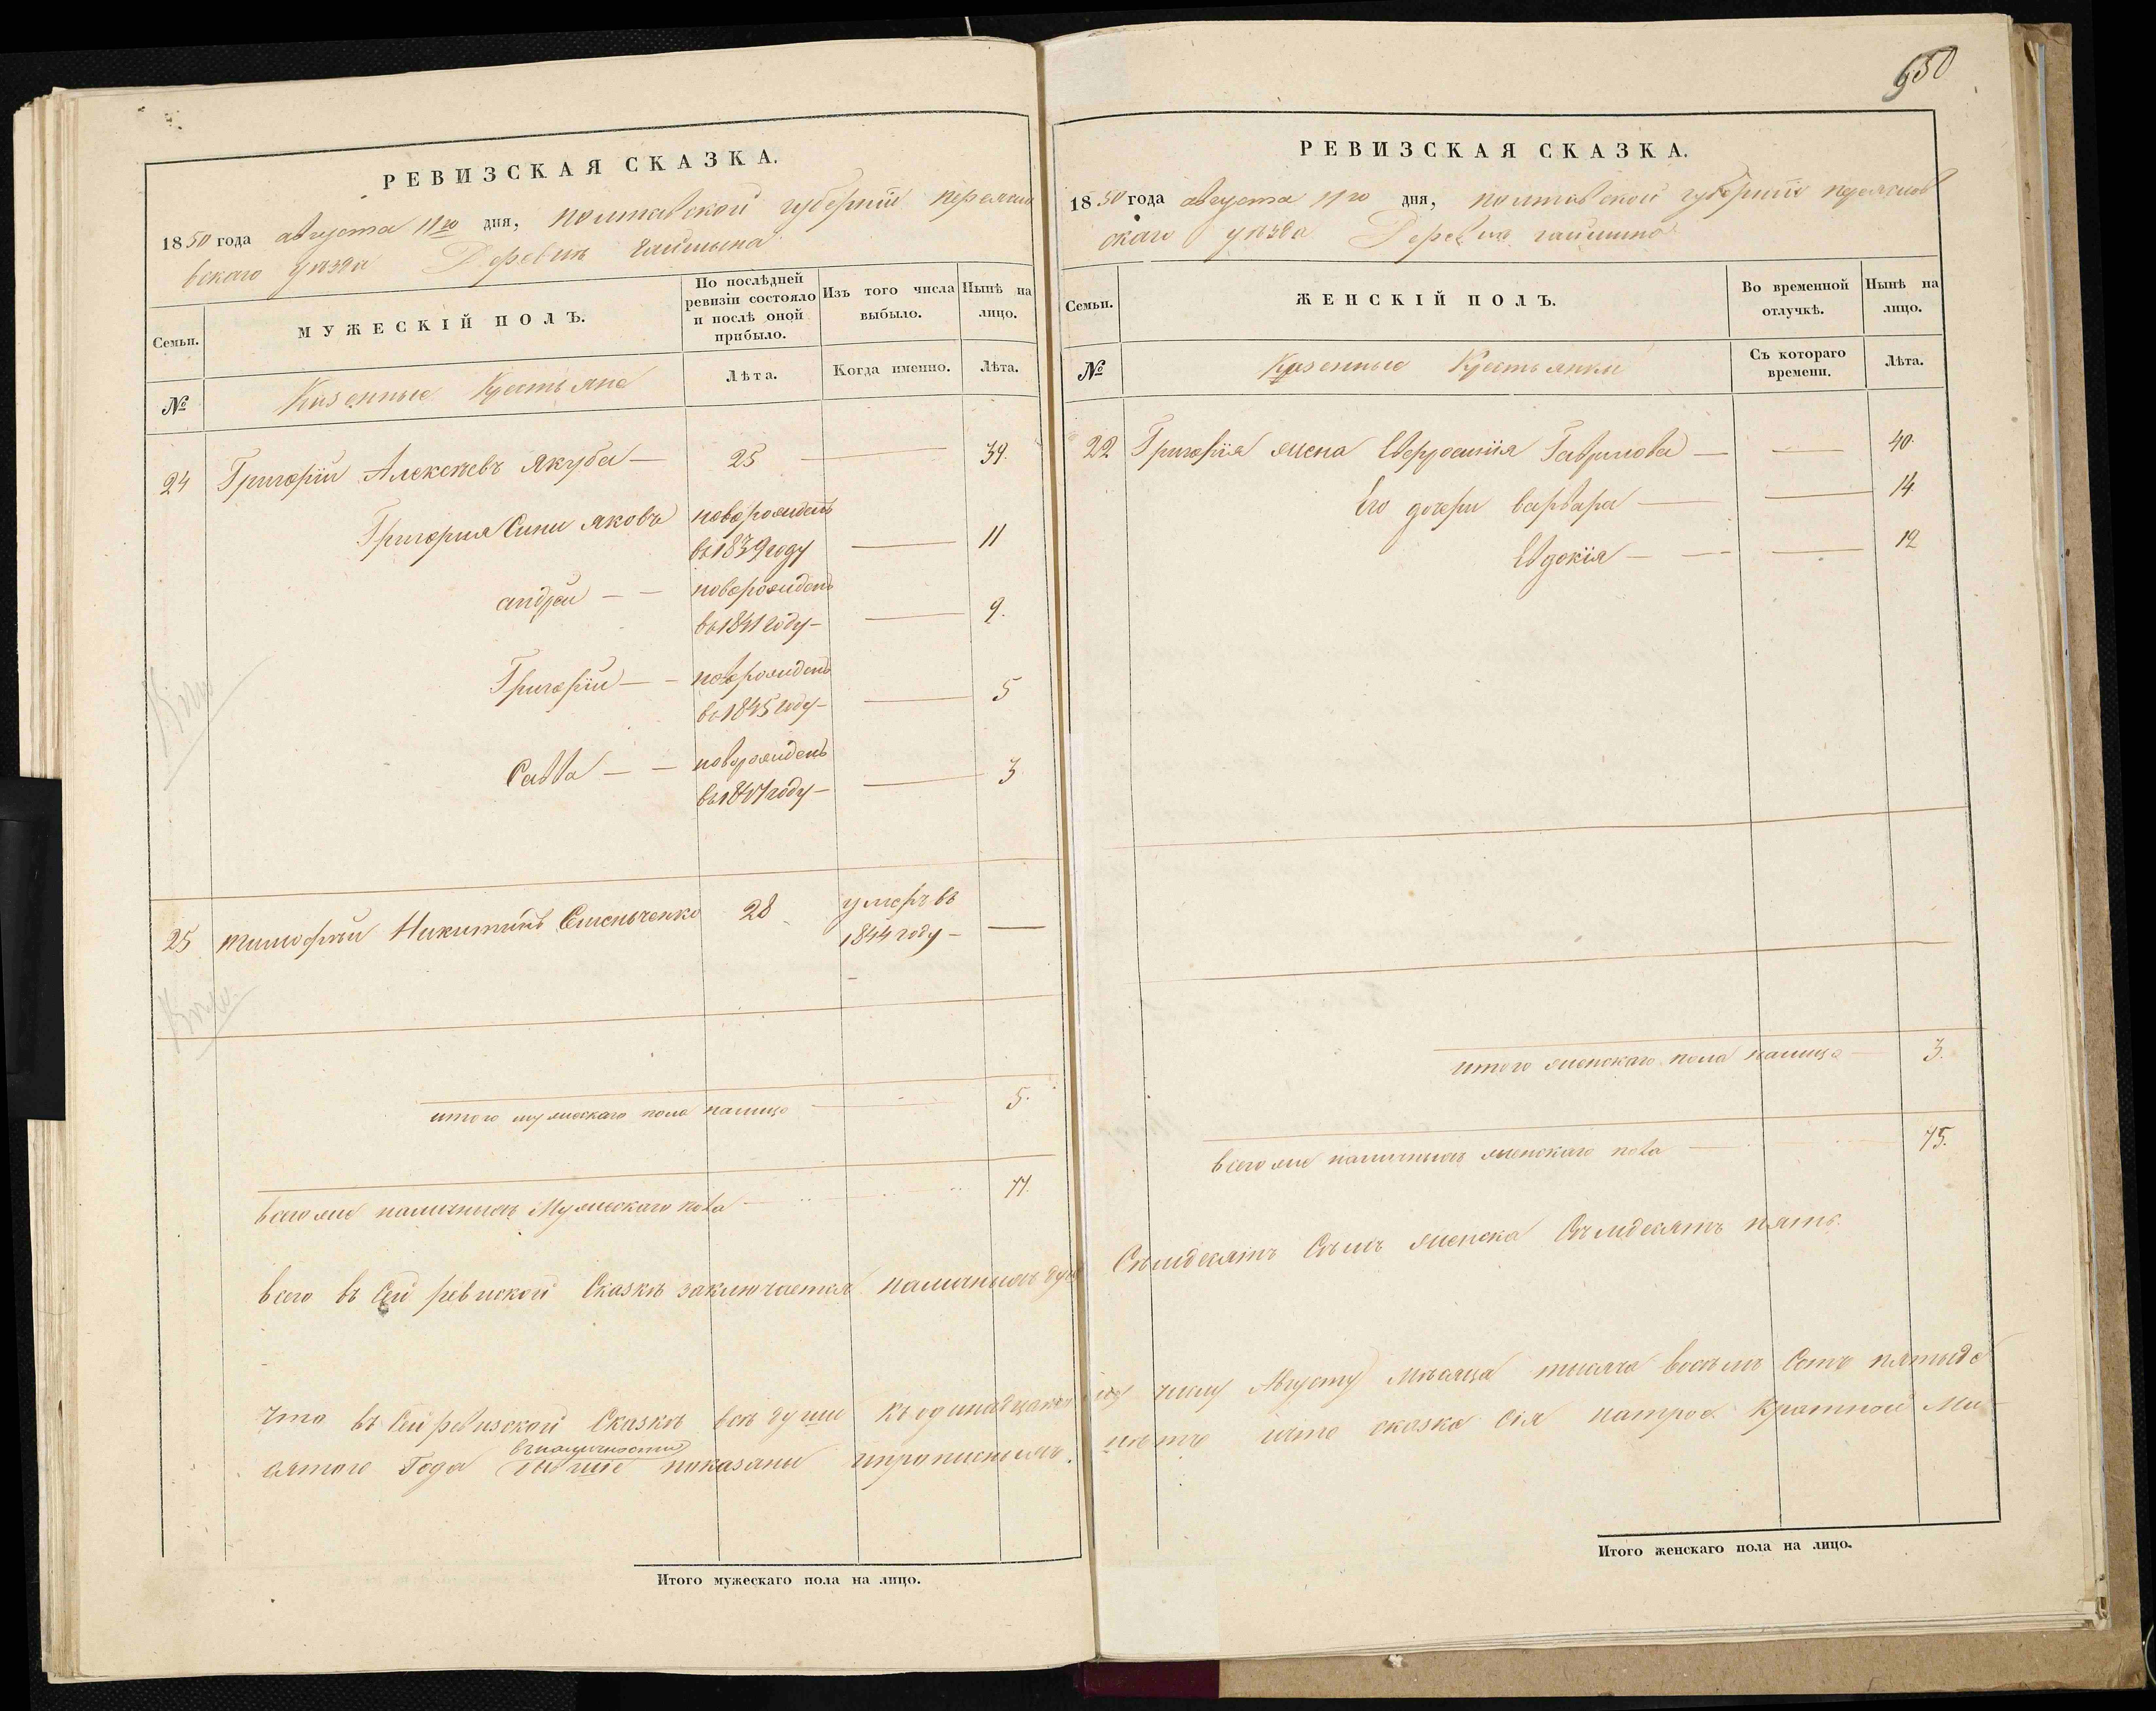 650
РЕВИЗСКАЯ СКАЗКА.
1850 года августа 11го дня, полтавской губерніи переясло
вскаго уѣзда Деревнѣ
Семьи.
МУЖЕСКІЙ ПОЛЪ.
По послѣдней ревизіи состояло и послѣ оной прибыло.
Изъ того числа выбыло.
Нынѣ на лицо.
№
Казенные Крестьяне
Лѣта.
Когда именно.
Лѣта.
24 Григорій Алексѣевъ Якуба — 25 — 39.
Григорія Сини яковъ новорожденъ
въ 1839 году — 11
андрей — — новорожденъ
въ 1841 году — — 9.
Григорій — — новорожденъ
въ 1845 году — — 5
Савва — — новорожденъ
въ 1847 году — — 3
25 тимофѣй Никитинъ Семенченко 28 умеръ въ
1844 году — —
итого мужескаго пола налицо 5.
всего же наличныхъ Мужескаго пола 77.
всего въ Сей ревиской Сказкѣ заключается наличныхъ душъ
Что въ Сей ревизской Сказкѣ всѣ души къ
въналичности
сятого Года показаны
Итого мужескаго пола на лицо.
РЕВИЗСКАЯ СКАЗКА.
1850 года августа 11го дня, полтавской губерніи
скаго уѣзда
Семьи.
ЖЕНСКІЙ ПОЛЪ.
Во временной отлучкѣ.
Нынѣ на лицо.
№
Казенные Крестьянки
Съ котораго времени.
Лѣта.
22 Григорія жена Евфросинія Гаврилова — — 40.
Его дочери варвара — — 14.
Евдокія — — — 12
итого женскаго пола налицо — 3.
всего же наличныхъ женскаго пола — 75.
Семдесятъ Семъ женска Семдесятъ пять.
числу Августу Мѣсяца тисяча восемъ Сотъ пятьде
сказка Сія
Итого женскаго пола на лицо.